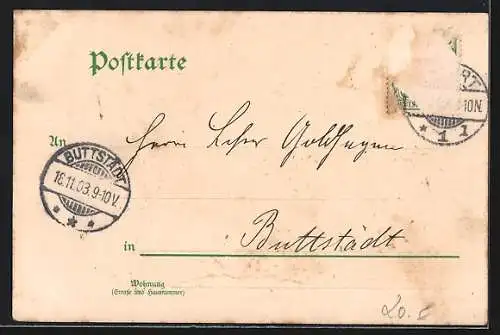 Postkarte
RT
10N.
* 1 1
An Herrn Goldhagen
BUTTSTÄDT
16.11.03.9-10V.
* * *
in Buttstädt
Wohnung
(Straße und Hausnummer)
20.